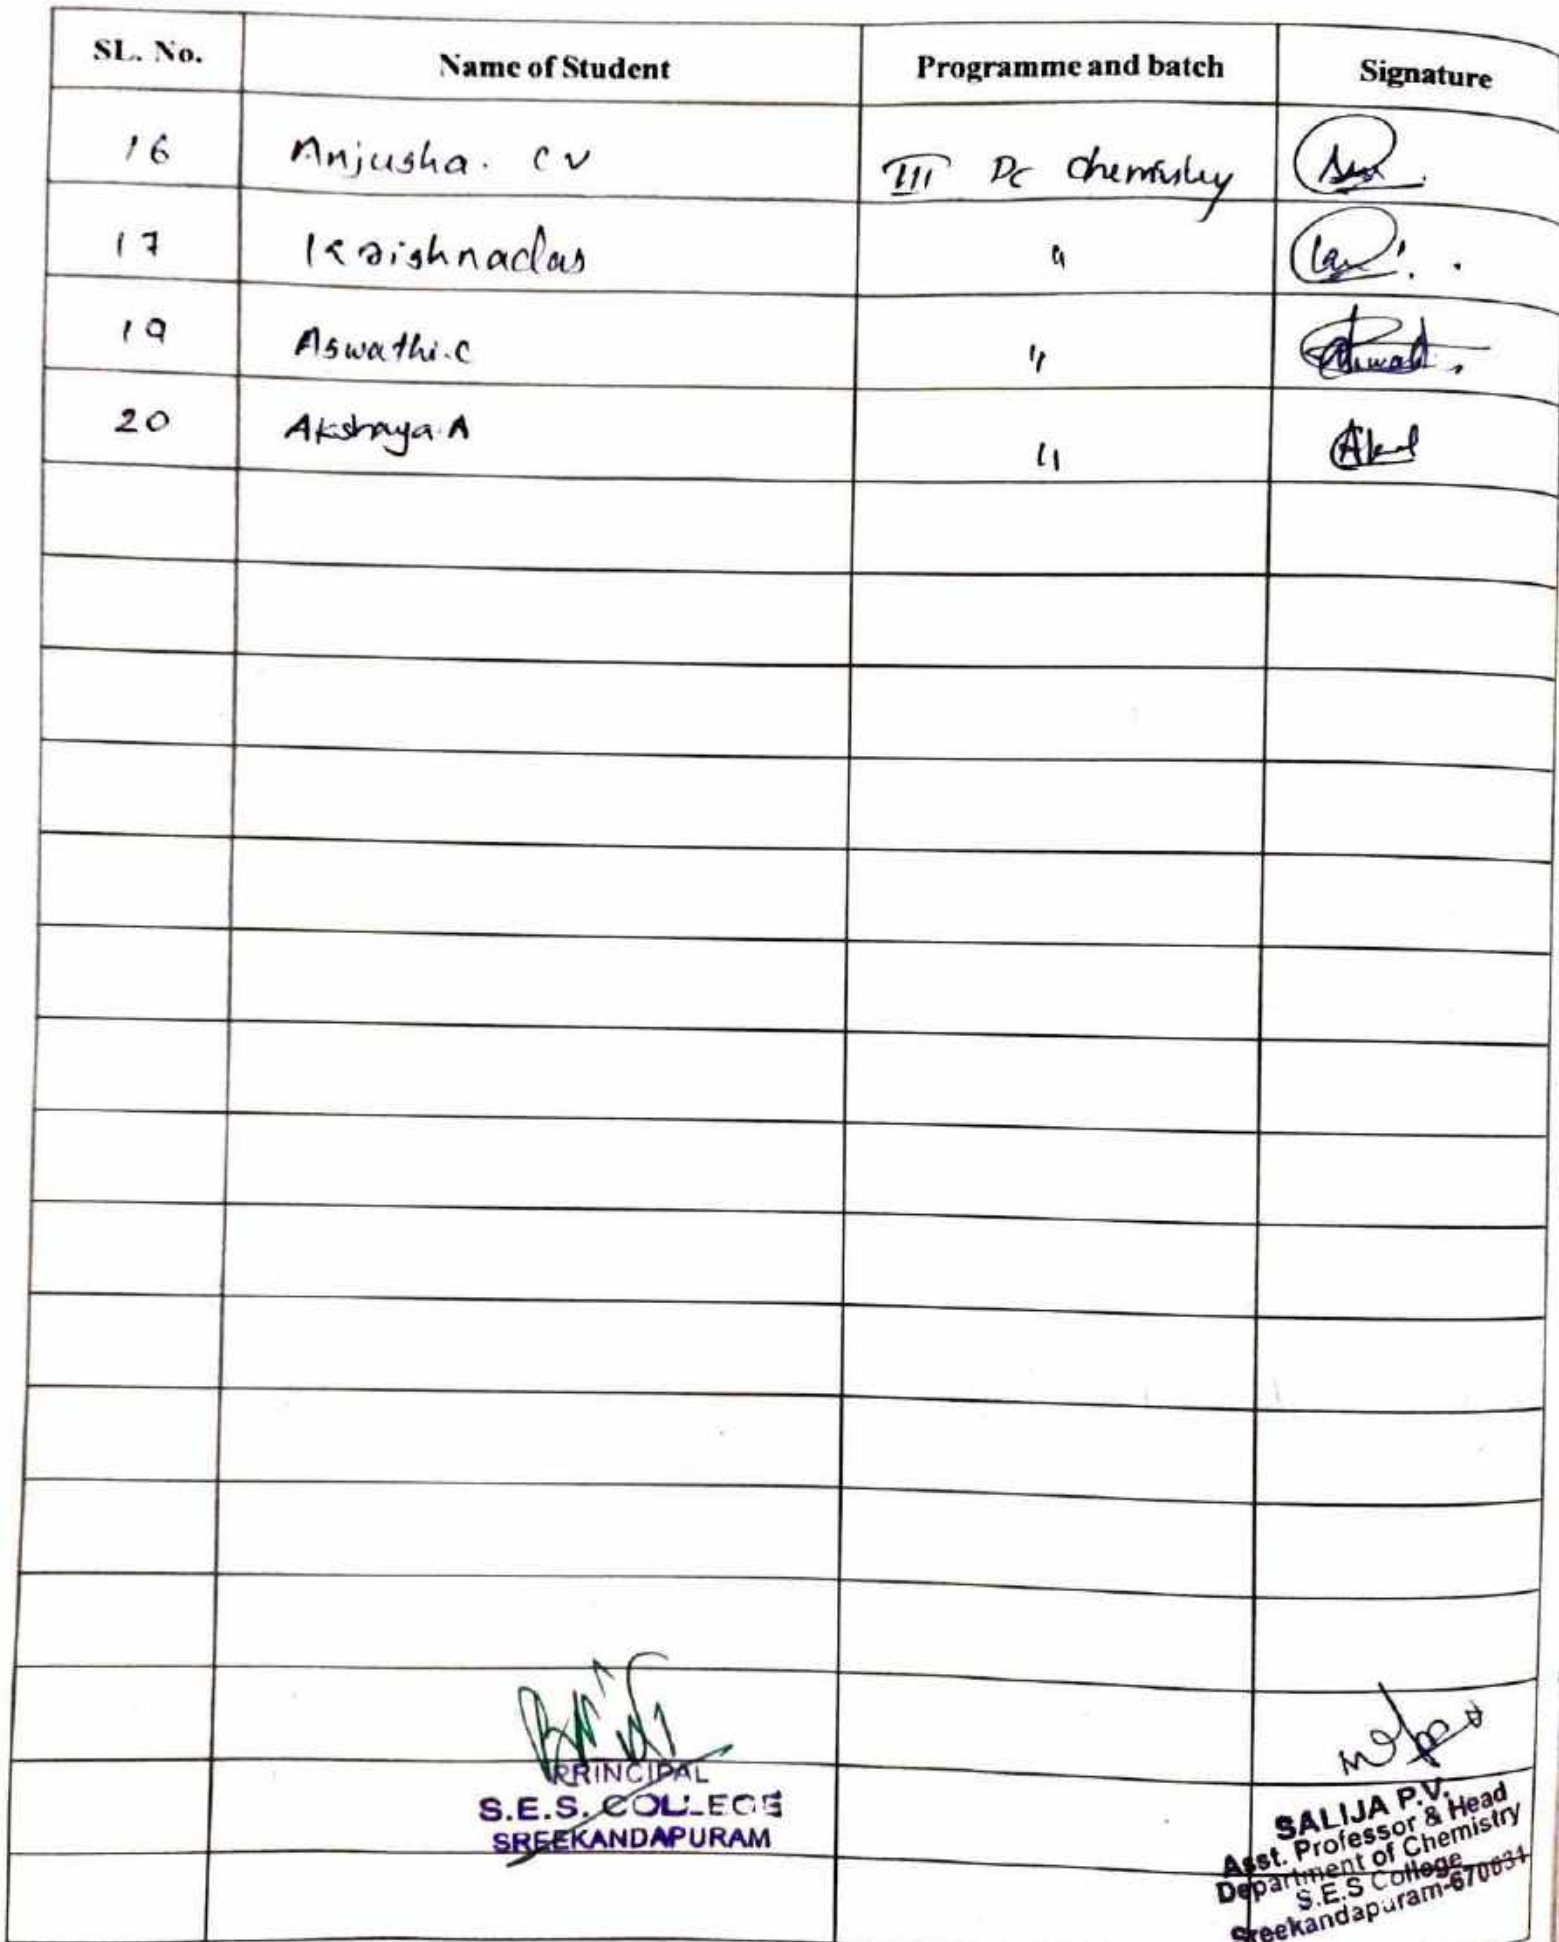 SL. No. Name of Student Programme and batch Signature
16 Anjusha. C V III DC Chemistry
17 Krishnadas "
19 Aswathi.C "
20 Akshaya.A "
PRINCIPAL
S.E.S. COLLEGE
SREEKANDAPURAM
SALIJA P.V.
Asst. Professor & Head
Department of Chemistry
S.E.S College
Sreekandapuram-670631